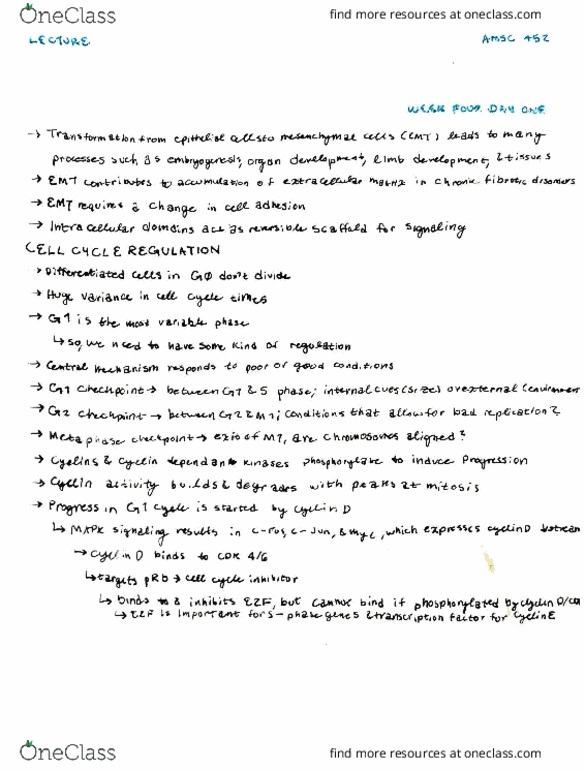 OneClass
find more resources at oneclass.com
LECTURE
AMSC 452
WEEK FOUR DAY ONE
→ Transformation from epithelial cells to mesenchymal cells (EMT) leads to many
processes such as embryogenesis, organ development, limb development, & tissues
→ EMT contributes to accumulation of extracellular matrix in chronic fibrotic disorders
→ EMT requires a change in cell adhesion
→ Intracellular domains act as reversible scaffold for signaling
CELL CYCLE REGULATION
→ Differentiated cells in G0 don't divide
→ Huge variance in cell cycle times
→ G1 is the most variable phase
↳ so, we need to have some kind of regulation
→ Central mechanism responds to poor or good conditions
→ G1 checkpoint → between G1 & S phase; internal cues (size) or external (environment
→ G2 checkpoint → between G2 & M; conditions that allow for bad replication?
→ Metaphase checkpoint → of M, are chromosomes aligned?
→ Cyclins & cyclin dependant kinases phosphorylate to induce progression
→ Cyclin activity builds & degrades with peaks at mitosis
→ Progress in G1 cycle is started by cyclin D
↳ MAPK signaling results in c-Fos, c-Jun, & myc, which expresses cyclin D
→ cyclin D binds to CDK 4/6
↳ targets pRb → cell cycle inhibitor
↳ binds to & inhibits E2F, but cannot bind if phosphorylated by cyclin D/
↳ E2F is important for S-phase genes & transcription factor for cyclin E
OneClass
find more resources at oneclass.com